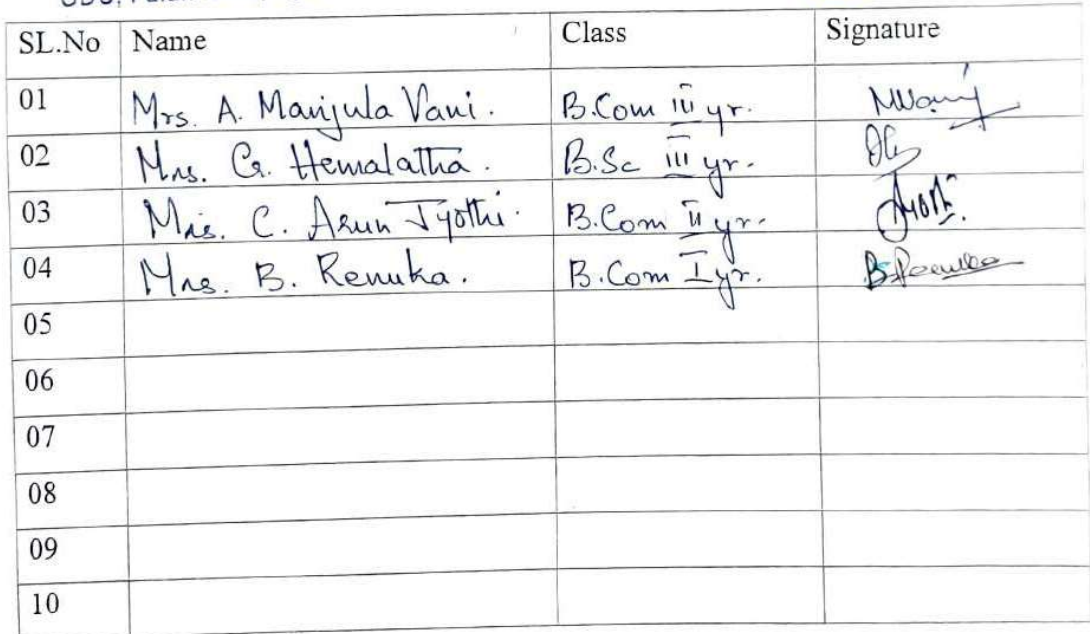 SL.No Name Class Signature
01 Mrs. A. Manjula Vani. B.Com III yr.
02 Mrs. G. Hemalatha. B.Sc III yr.
03 Mrs. C. Arun Jyothi. B.Com II yr. Jyothi.
04 Mrs. B. Renuka. B.Com I yr. B. Renuka
05
06
07
08
09
10